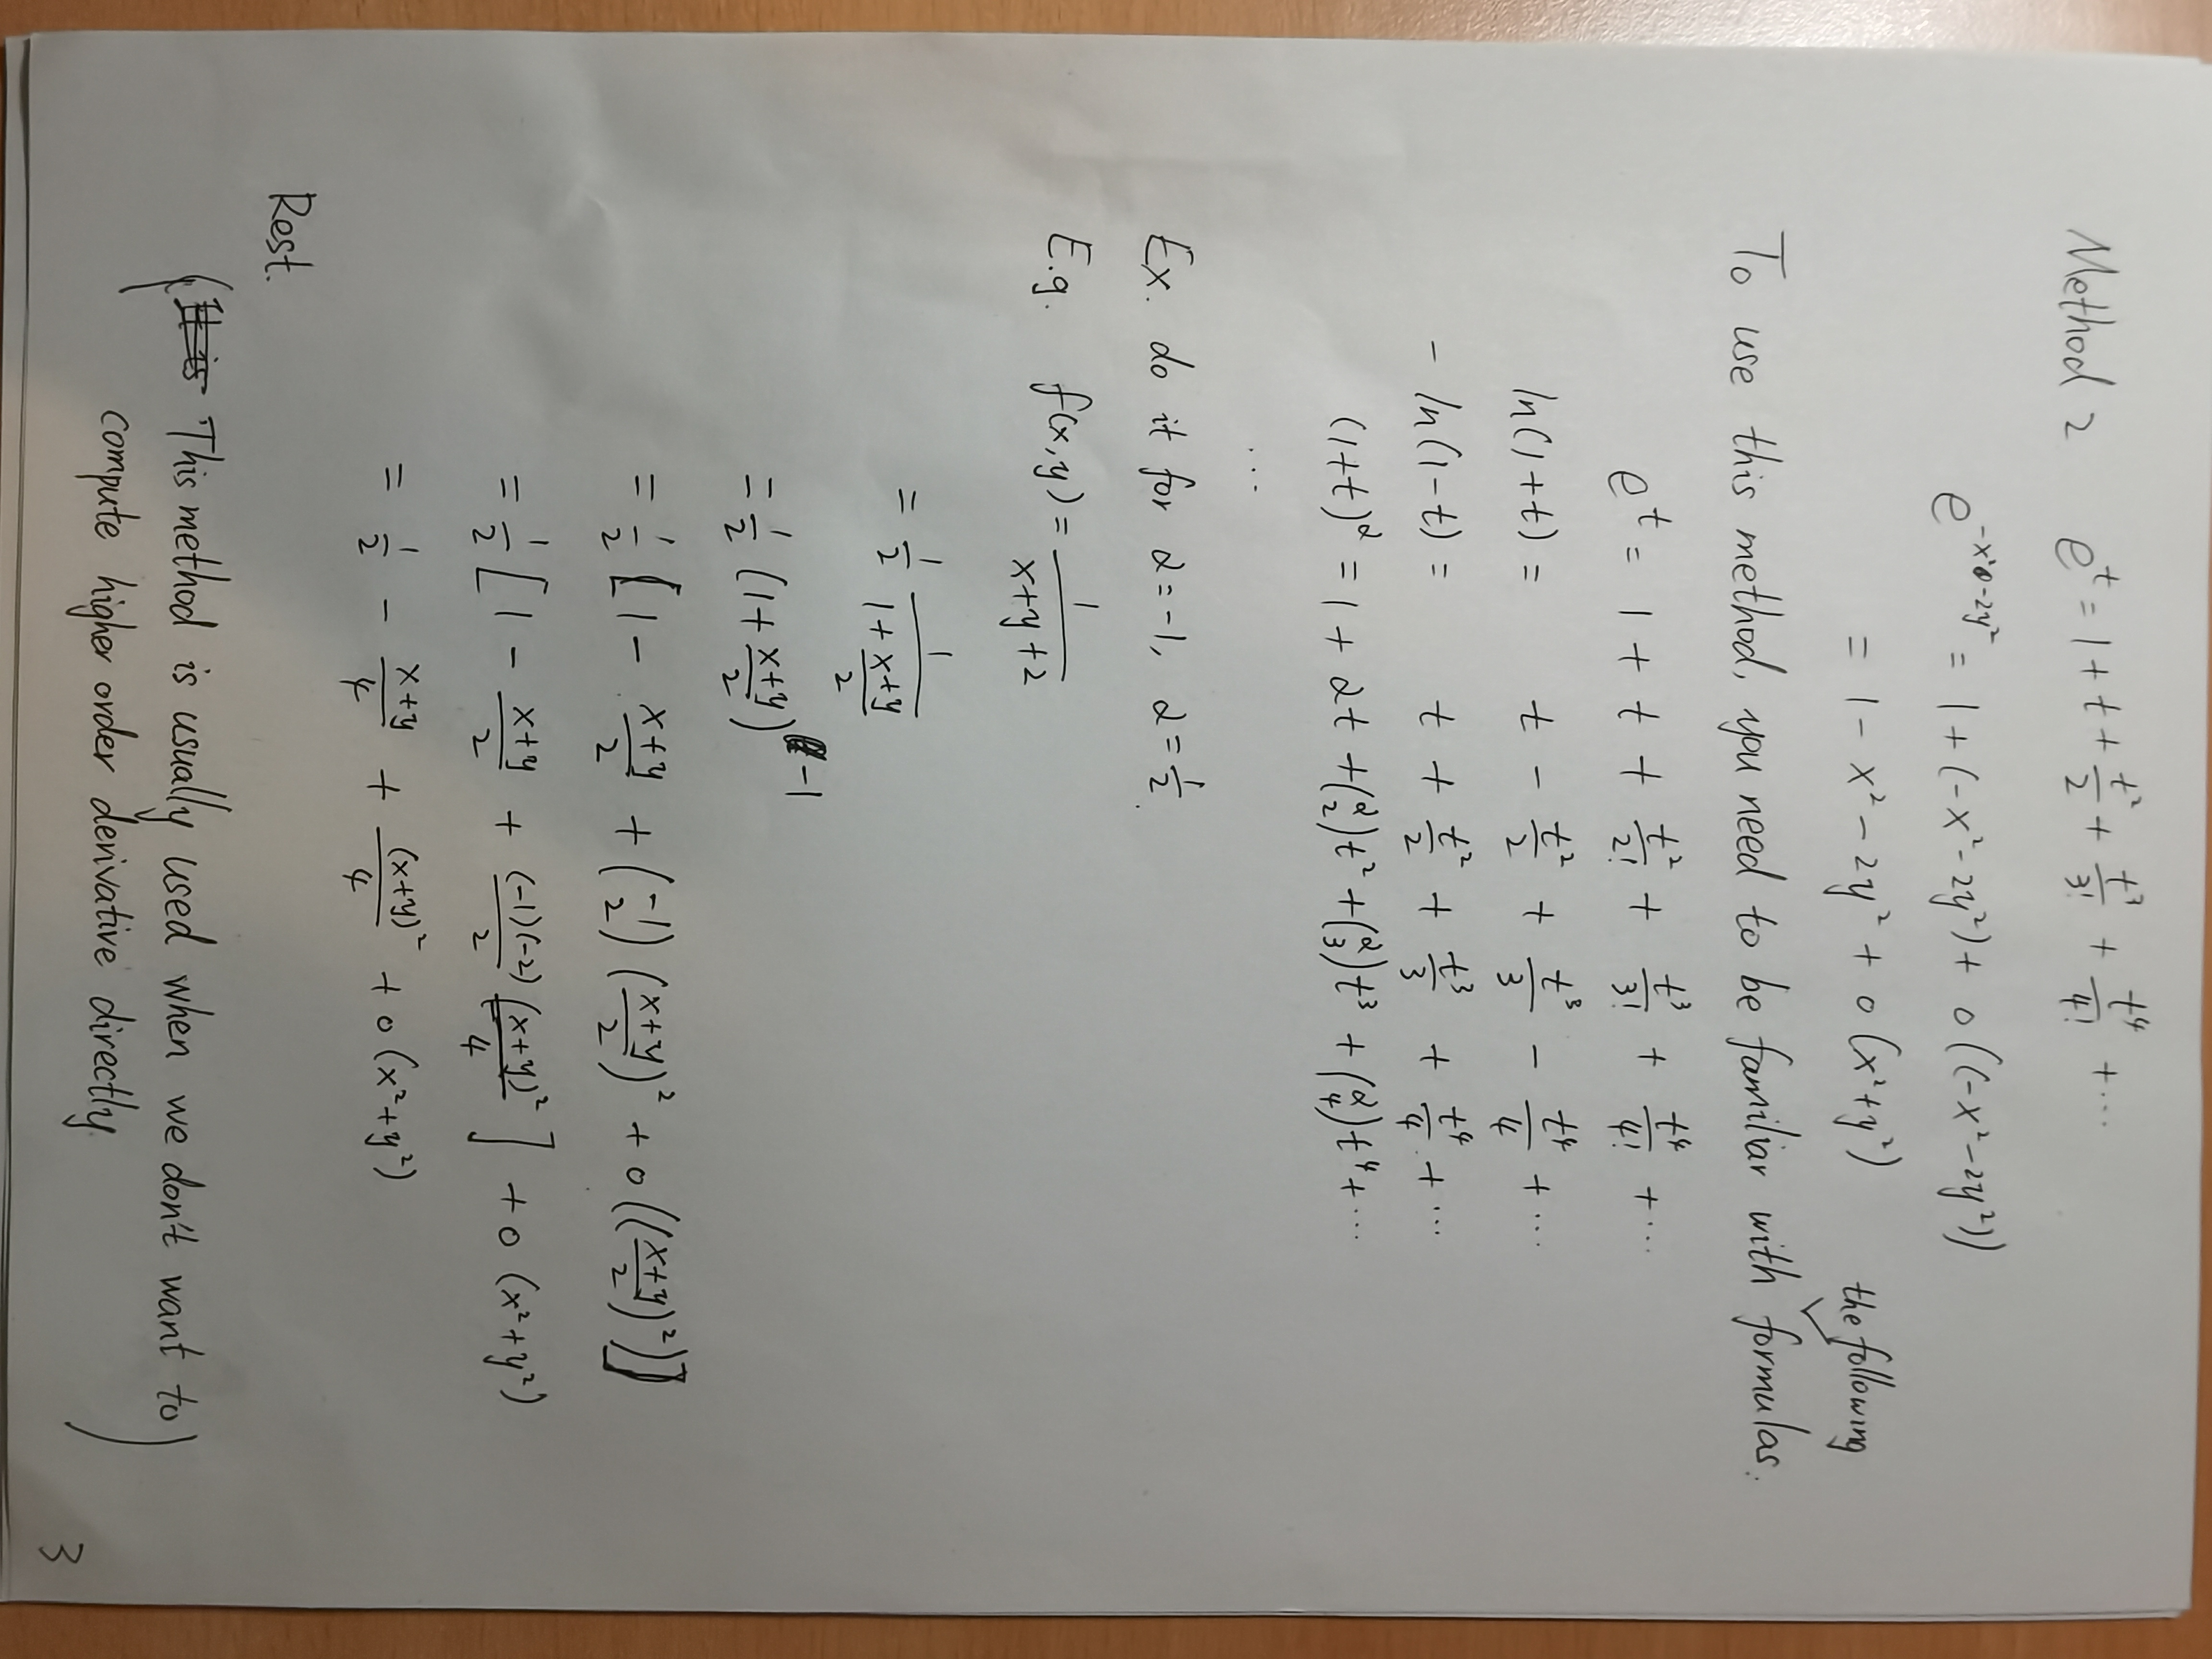 Method 2 e^t = 1 + t + t²/2 + t³/3! + t⁴/4! + ···
e^(-x²-2y²) = 1 + (-x²-2y²) + o((-x²-2y²))
= 1 - x² - 2y² + o(x²+y²)
the following
To use this method, you need to be familiar with formulas.
e^t = 1 + t + t²/2! + t³/3! + t⁴/4! + ···
ln(1+t) = t - t²/2 + t³/3 - t⁴/4 + ···
- ln(1-t) = t + t²/2 + t³/3 + t⁴/4 + ···
(1+t)^α = 1 + αt + (α 2)t² + (α 3)t³ + (α 4)t⁴ + ···
...
Ex. do it for α=-1, α=1/2.
E.g. f(x,y) = 1/(x+y+2)
= 1/2 1/(1+(x+y)/2)
= 1/2 (1+(x+y)/2)^-1
= 1/2 [1 - (x+y)/2 + (-1 2)((x+y)/2)² + o(((x+y)/2)²)]
= 1/2 [1 - (x+y)/2 + (-1)(-2)/2 (x+y)²/4] + o(x²+y²)
= 1/2 - (x+y)/4 + (x+y)²/4 + o(x²+y²)
Rest.
(It is This method is usually used when we don't want to
compute higher order derivative directly)
3